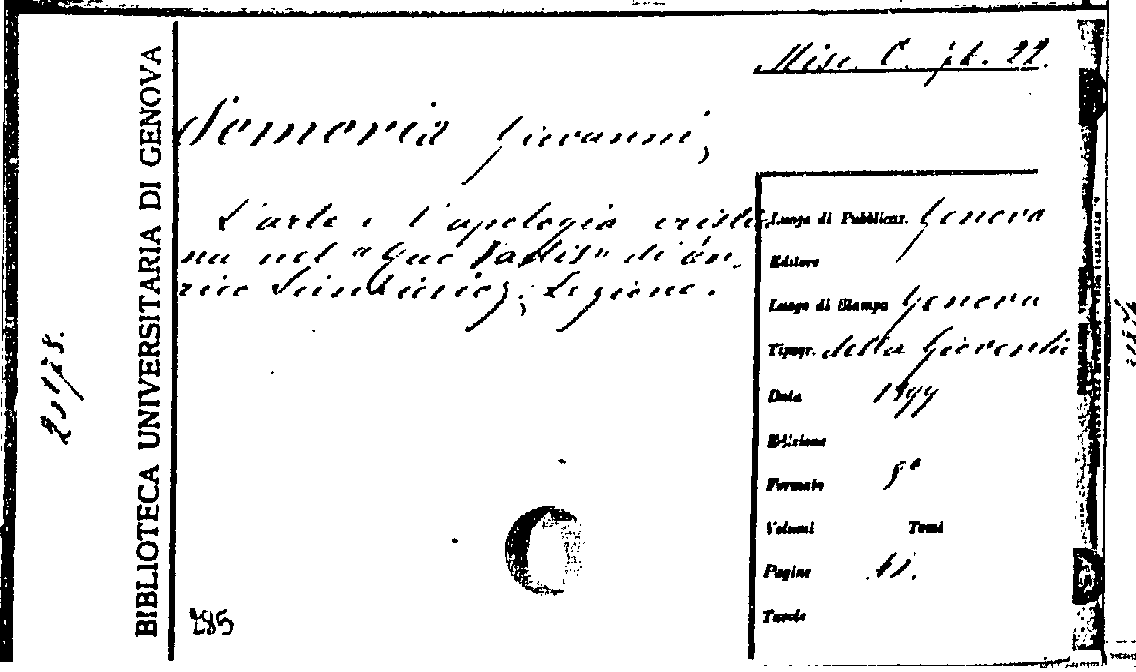 Misc. C. 22.
Semeria Giovanni,
L'arte e l'apologia cristia
na nel "Quo Vadis" di En.
rico Sienkievicz; Lezione.
Luogo di Pubblicaz. Genova
Editore
Luogo di Stampa Genova
Tipogr. della Gioventù
Data 1899
Edizione
Formato 8°
Volumi Tomi
Pagine
Tavole
BIBLIOTECA UNIVERSITARIA DI GENOVA
285